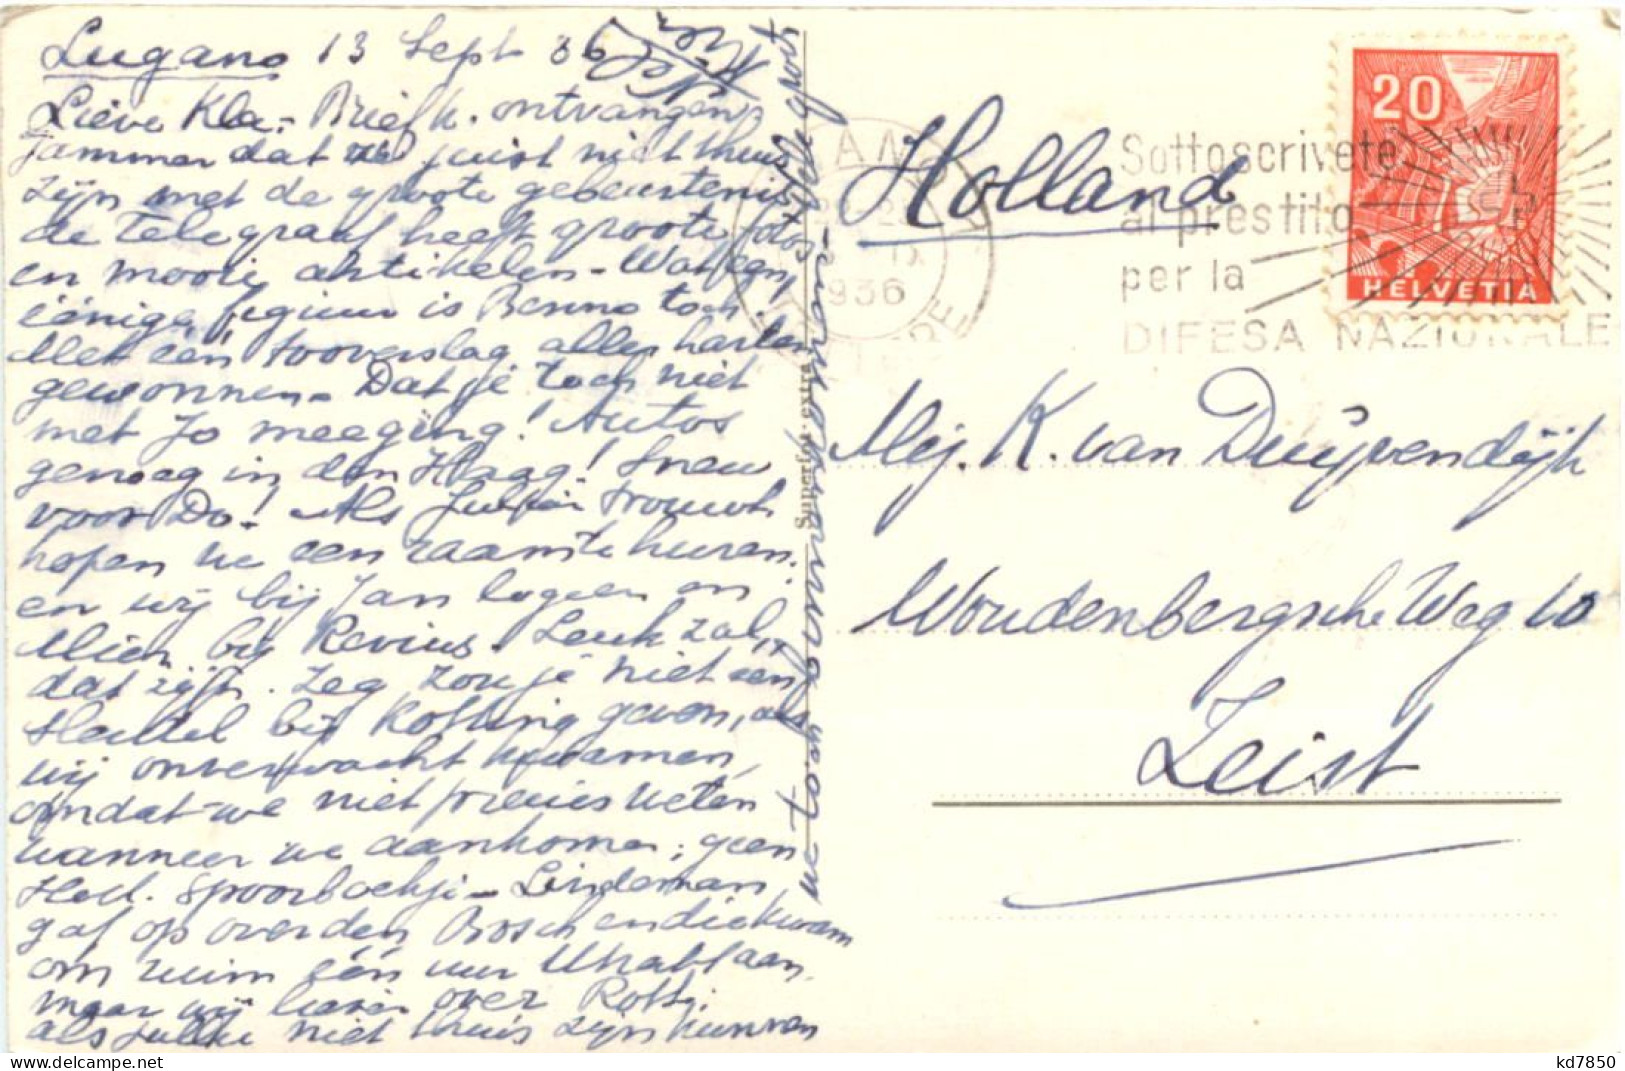 Lugano 13 Sept 36
Lieve Kla.- Briefk. ontvangen
jammer dat we juist niet thuis
zijn met de groote gebeurtenis
de Telegraaf heeft groote fotos
en mooie artikelen - Wat een
éénige figuur is Benno toch.
Met één tooverslag alle harten
gewonnen. Dat je toch niet
met Jo meeging! Autos
genoeg in den Haag! Sneu
voor Do! Als Julia trouwt
hopen we een raam te huren.
en wij bij Jan logeeren en
Mien bij Revius. Leuk zal
dat zijn. Zeg zou je niet een
sleutel bij Kotting geven, als
wij onverwacht kwamen,
omdat we niet precies weten
wanneer we aankomen; geen
Holl. spoorboekje - Lindeman
gaf op over den Bosch en die kwam
om ruim één uur aan.
maar wij liever over Rott.
als jullie niet thuis zijn kunnen
we toch
Superfoto extra
Holland
1936
Sottoscrivete
al prestito
per la
DIFESA NAZIONALE
20
HELVETIA
Mej. K. van Duijvendijk
Woudenbergsche Weg 10
Zeist
kd7850